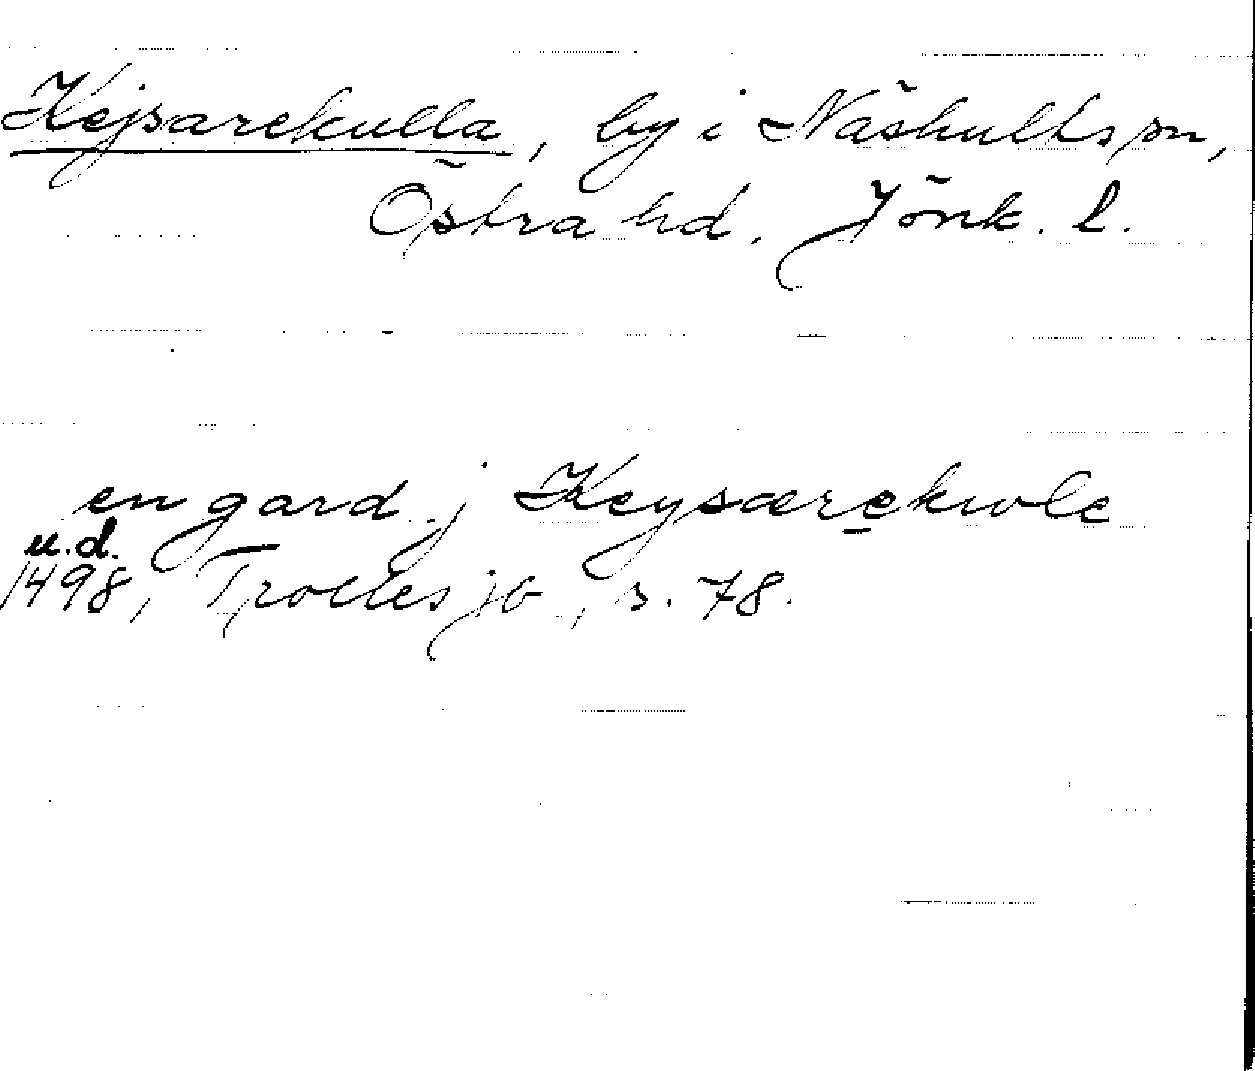 Kejsarekulla, by i Näshults sn,
Östra hd. Jönk. l.
en gard j Keysærekwle
u.d.
1498, Trolles jb, s. 78.